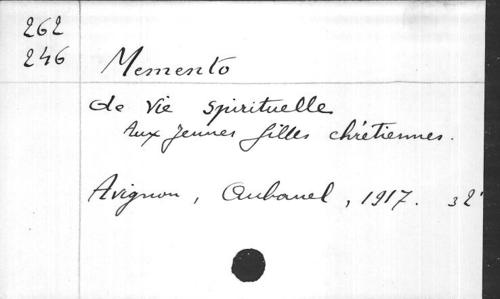 262
246
Memento
de Vie Spirituelle
Aux Jeunes filles chrétiennes.
Avignon, Aubanel, 1917. 32°